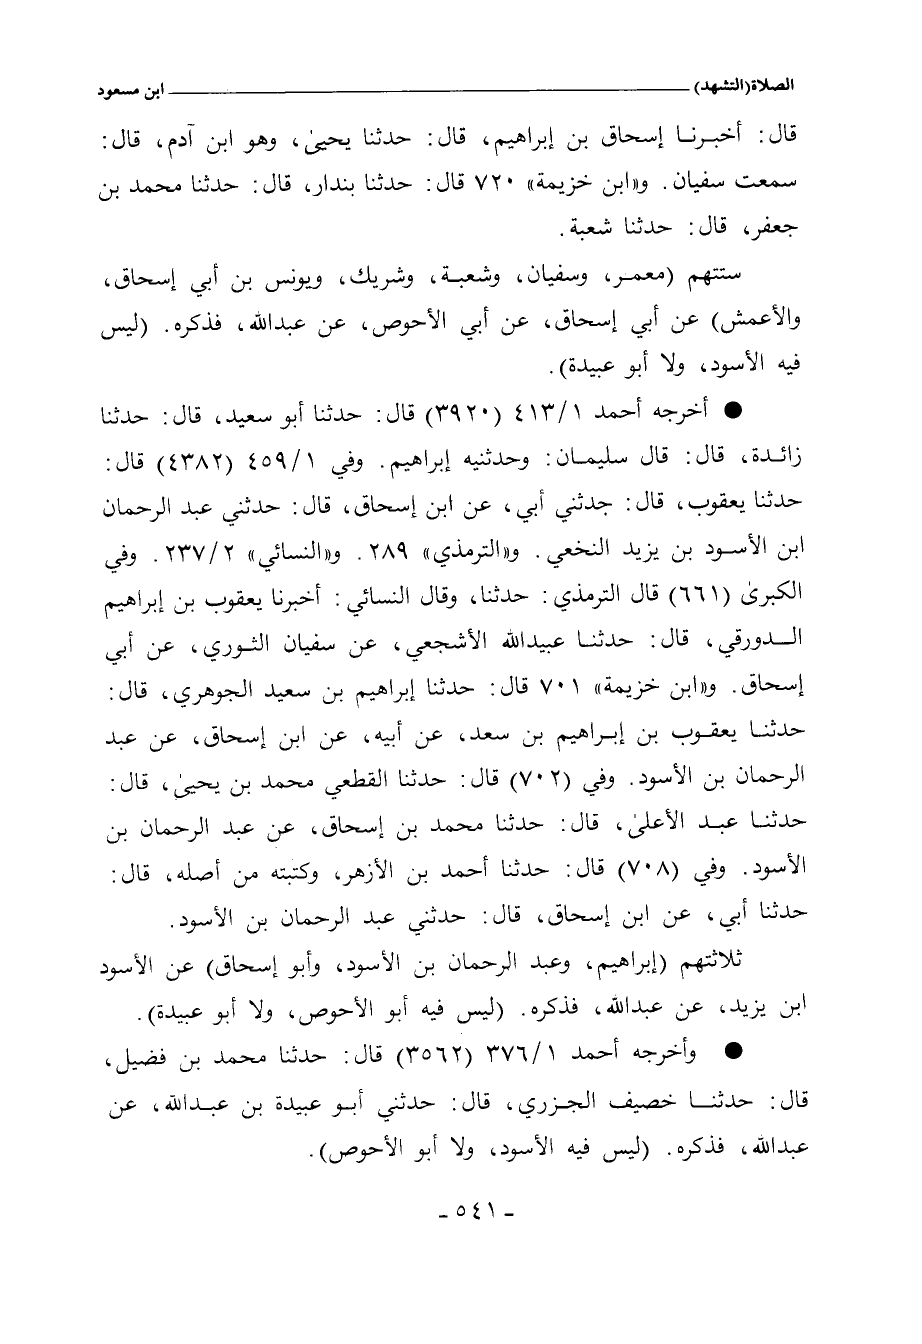 الصلاة(التشهد) ابن مسعود
قال: أخبرنا إسحاق بن إبراهيم، قال: حدثنا يحيىٰ، وهو ابن آدم، قال:
سمعت سفيان. و«ابن خزيمة» ٧٢٠ قال: حدثنا بندار، قال: حدثنا محمد بن
جعفر، قال: حدثنا شعبة.
ستتهم (معمر، وسفيان، وشعبة، وشريك، ويونس بن أبي إسحاق،
والأعمش) عن أبي إسحاق، عن أبي الأحوص، عن عبدالله، فذكره. (ليس
فيه الأسود، ولا أبو عبيدة).
● أخرجه أحمد ٤١٣/١ (٣٩٢٠) قال: حدثنا أبو سعيد، قال: حدثنا
زائدة، قال: قال سليمان: وحدثنيه إبراهيم. وفي ٤٥٩/١ (٤٣٨٢) قال:
حدثنا يعقوب، قال: حدثني أبي، عن ابن إسحاق، قال: حدثني عبد الرحمان
ابن الأسود بن يزيد النخعي. و«الترمذي» ٢٨٩. و«النسائي» ٢٣٧/٢. وفي
الكبرىٰ (٦٦١) قال الترمذي: حدثنا، وقال النسائي: أخبرنا يعقوب بن إبراهيم
الدورقي، قال: حدثنا عبيدالله الأشجعي، عن سفيان الثوري، عن أبي
إسحاق. و«ابن خزيمة» ٧٠١ قال: حدثنا إبراهيم بن سعيد الجوهري، قال:
حدثنا يعقوب بن إبراهيم بن سعد، عن أبيه، عن ابن إسحاق، عن عبد
الرحمان بن الأسود. وفي (٧٠٢) قال: حدثنا القطعي محمد بن يحيىٰ، قال:
حدثنا عبد الأعلىٰ، قال: حدثنا محمد بن إسحاق، عن عبد الرحمان بن
الأسود. وفي (٧٠٨) قال: حدثنا أحمد بن الأزهر، وكتبته من أصله، قال:
حدثنا أبي، عن ابن إسحاق، قال: حدثني عبد الرحمان بن الأسود.
ثلاثتهم (إبراهيم، وعبد الرحمان بن الأسود، وأبو إسحاق) عن الأسود
ابن يزيد، عن عبدالله، فذكره. (ليس فيه أبو الأحوص، ولا أبو عبيدة).
● وأخرجه أحمد ٣٧٦/١ (٣٥٦٢) قال: حدثنا محمد بن فضيل،
قال: حدثنا خصيف الجزري، قال: حدثني أبو عبيدة بن عبدالله، عن
عبدالله، فذكره. (ليس فيه الأسود، ولا أبو الأحوص).
- ٥٤١ -